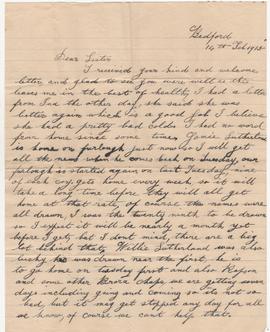 Bedford
14th Feb 1915
Dear Sister
I received your kind and welcome
letter and glad to see you were well as this
leaves me in the best of health, I had a letter
from Ina the other day, she said she was
better again which is a good job I believe
she had a pretty bad cold. I had no word
from home since some time, Hosie Sutherland
is home on furlough just now so I will get
all the news when he comes back on Tuesday, our
furlough is started again on last Tuesday, nine
of each coy. get home every week, so it will
take a long time before they will all get
home at that rate, of course the names were
all drawn, I was the twenty ninth to be drawn
so I expect it will be nearly a month yet
before I get but I don't mind, there are a big
lot behind that, Willie Sutherland was also
lucky he was drawn near the first, he is
to go home on Tuesday first and also
and some other Brora chaps, we are getting seven
days including going and coming so its not so
bad, but it may get stopped any day for all
we know, of course we can't help that.